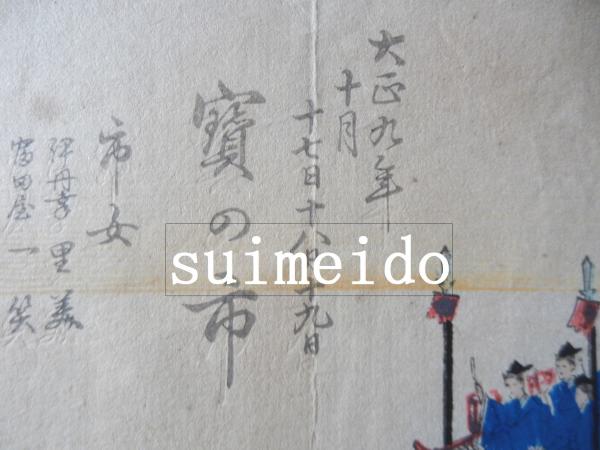 大正九年
十月
十七日十八日十九日
寶の市
市女
伊丹幸 里美
富田屋 一笑
suimeido